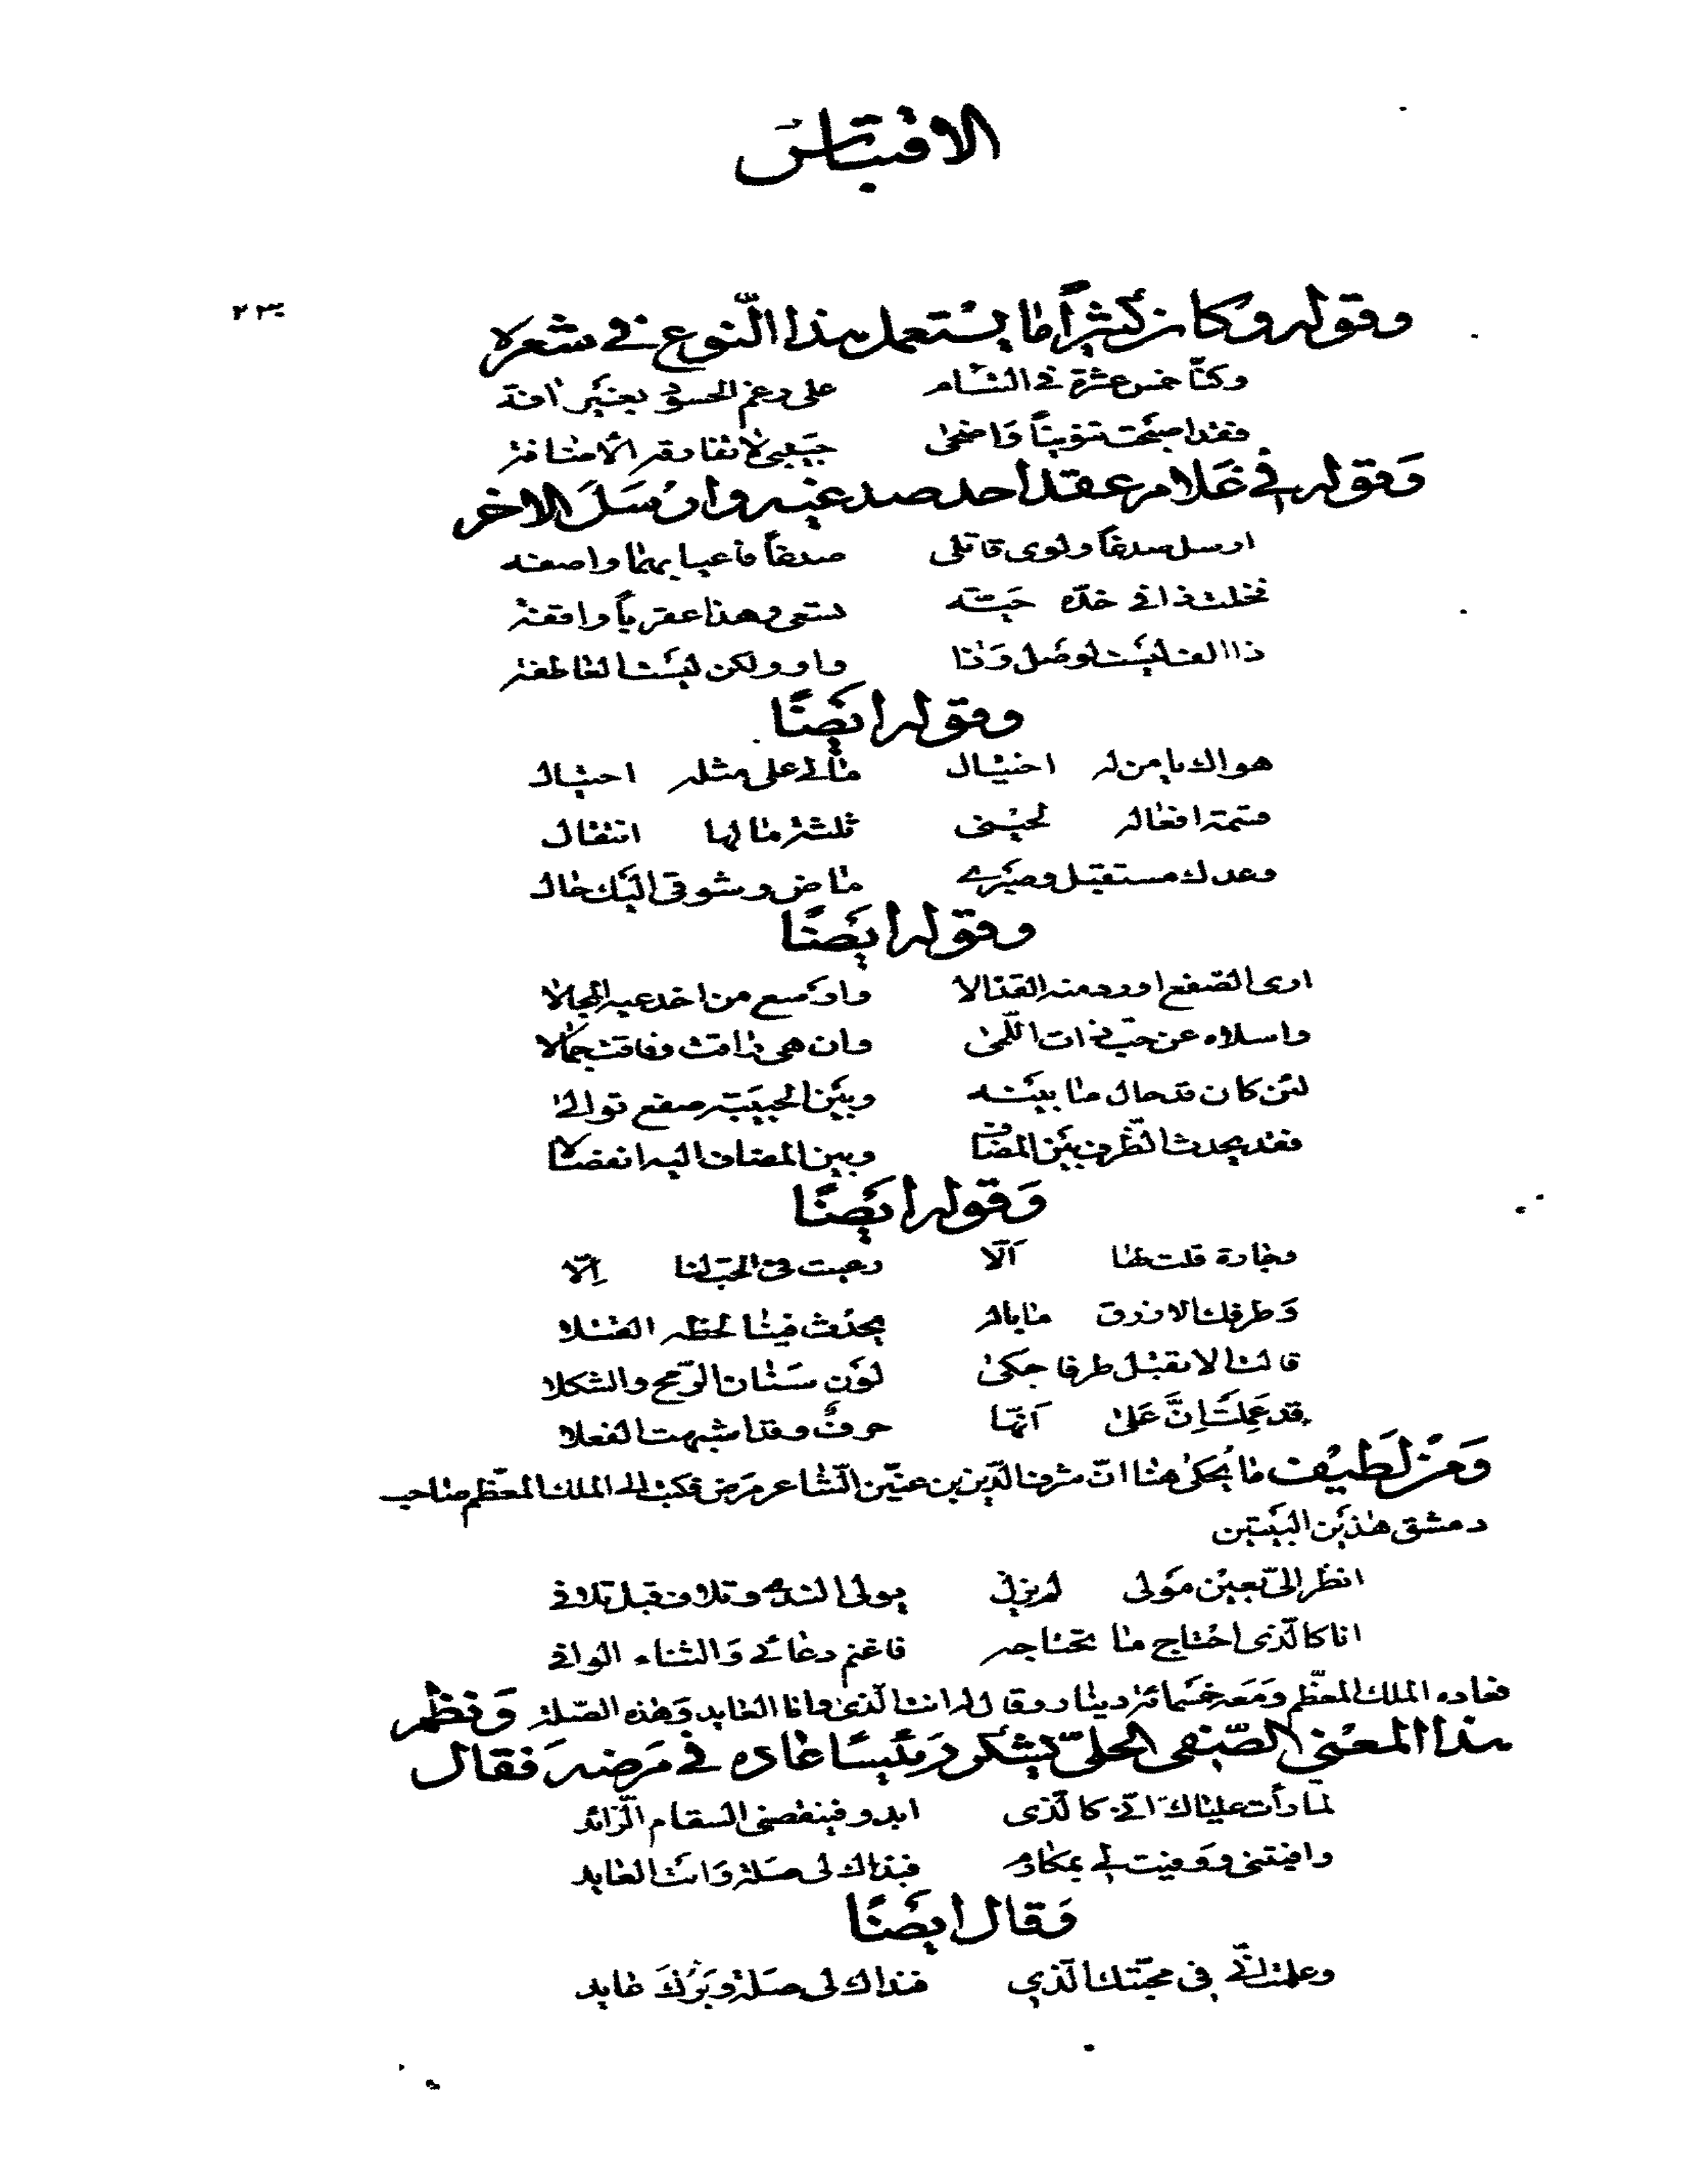 الاقتباس
٢٣٠
وقوله وكان كثيراً ما يستعمل هذا النّوع في شعره
وكنّا خمس عشرة في التئام على رغم الحسود بغير آفة
فقد اصبحت تنويناً وَاضحى حبيبي لا تفارقه الاضافة
وَقوله في غلام عقد احد صدغيه وارسل الاخر
ارسل صدغاً ولوى قاتلى صدغاً فاعيا بهما واصفه
فخلت ذا في خدّه حيّة تسعى وهذا عقرباً واقفة
ذا الف ليست لوصل وَذا واو ولكن ليست العاطفة
وقوله ايضًا
هواك يا من له اختيال مالي على مثله احتيال
قسمة افعاله لحيني ثلثة ما لها انتقال
وعدك مستقبل وصبري ماض وشوقى اليك حال
وقوله ايضًا
ارى الصّفع اورد منه القذالا واوسع من اخدعيه المجالا
واسلاه عن حبّ ذات اللّمى وان هي رامت وفاقت جمالا
لئن كان قد حال ما بينه وبين الحبيبة صفع توالى
فقد يحدث الظّرف بين المضاف وبين المضاف اليه انفصالا
وَقوله ايضًا
وجارة قلت لها اَلّا رعيت في الحبّ لنا اِلّا
وَطرفك الازرق ما باله يحدث فينا لحظه القتلا
قالت الا تقبل طرفا حكى لون سنان الرّمح والشكلا
قد عَمِلَت اِنَّ عَلى اَنّها حرفٌ وقد اشبهت الفعلا
وَمن لطيف ما يحكى هنا انّ شرف الدّين بن عنين الشّاعر مرض فكتب الى الملك المعظّم صاحب
دمشق هذين البيتين
انظر الىّ بعين مولى لم يزل يولى الندى وتلاف قبل تلافي
انا كالّذى احتاج ما تحتاجه فاغنم دعائي وَالثناء الوافي
فعاده الملك المعظّم وَمَعه خمسمائة دينار وقال له انت الّذى وانا العايد وَهذه الصّلة وَنظم
هذا المعنى الصّفى الحلّىّ يشكر رئيسًا عاده في مَرضه فقال
لما رأت علياك انّي كالّذى ابدو فينقصنى السقام الزّائد
وافيتنى ووفيت لي بمكارم فنداك لى صلة وَانت العايد
وَقال ايضًا
وعلمت انّي في محبّتك الّذي فنداك لى صلة وبرّك عايد